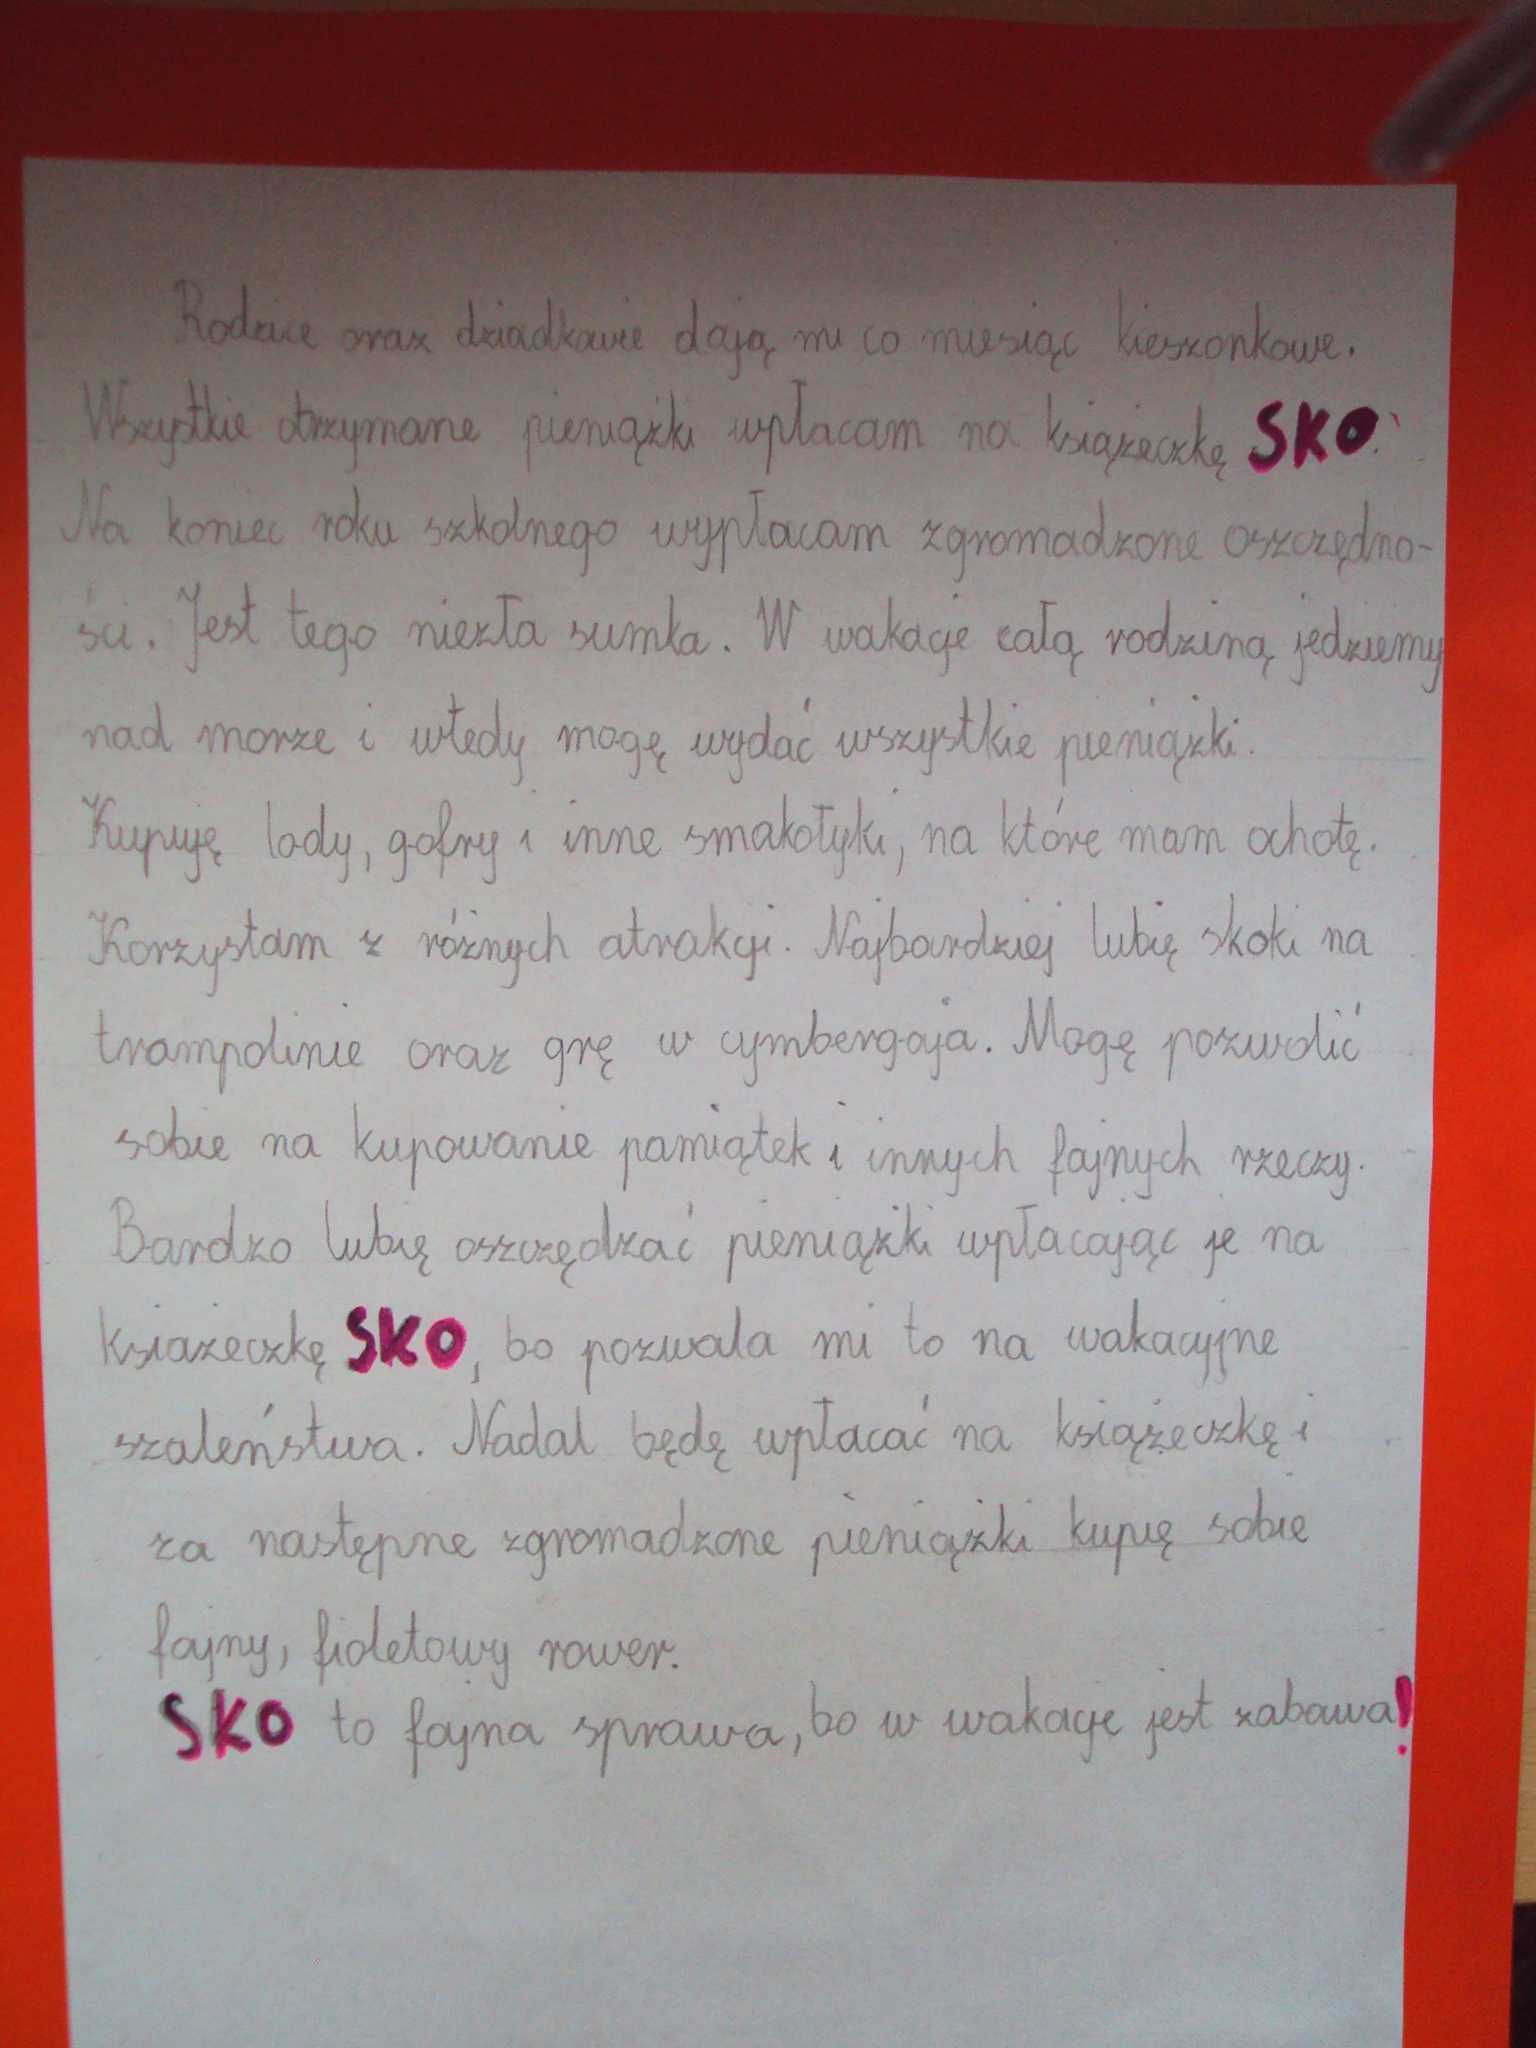 Rodzice oraz dziadkowie dają mi co miesiąc kieszonkowe.
Wszystkie otrzymane pieniążki wpłacam na książeczkę SKO.
Na koniec roku szkolnego wypłacam zgromadzone oszczędno-
ści. Jest tego niezła sumka. W wakacje całą rodziną jedziemy
nad morze i wtedy mogę wydać wszystkie pieniążki.
Kupuję lody, gofry i inne smakołyki, na które mam ochotę.
Korzystam z różnych atrakcji. Najbardziej lubię skoki na
trampolinie oraz grę w cymbergaja. Mogę pozwolić
sobie na kupowanie pamiątek i innych fajnych rzeczy.
Bardzo lubię oszczędzać pieniążki wpłacając je na
ksiażeczkę SKO, bo pozwala mi to na wakacyjne
szaleństwa. Nadal będę wpłacać na książeczkę i
za następne zgromadzone pieniążki kupię sobie
fajny, fioletowy rower.
SKO to fajna sprawa, bo w wakacje jest zabawa!